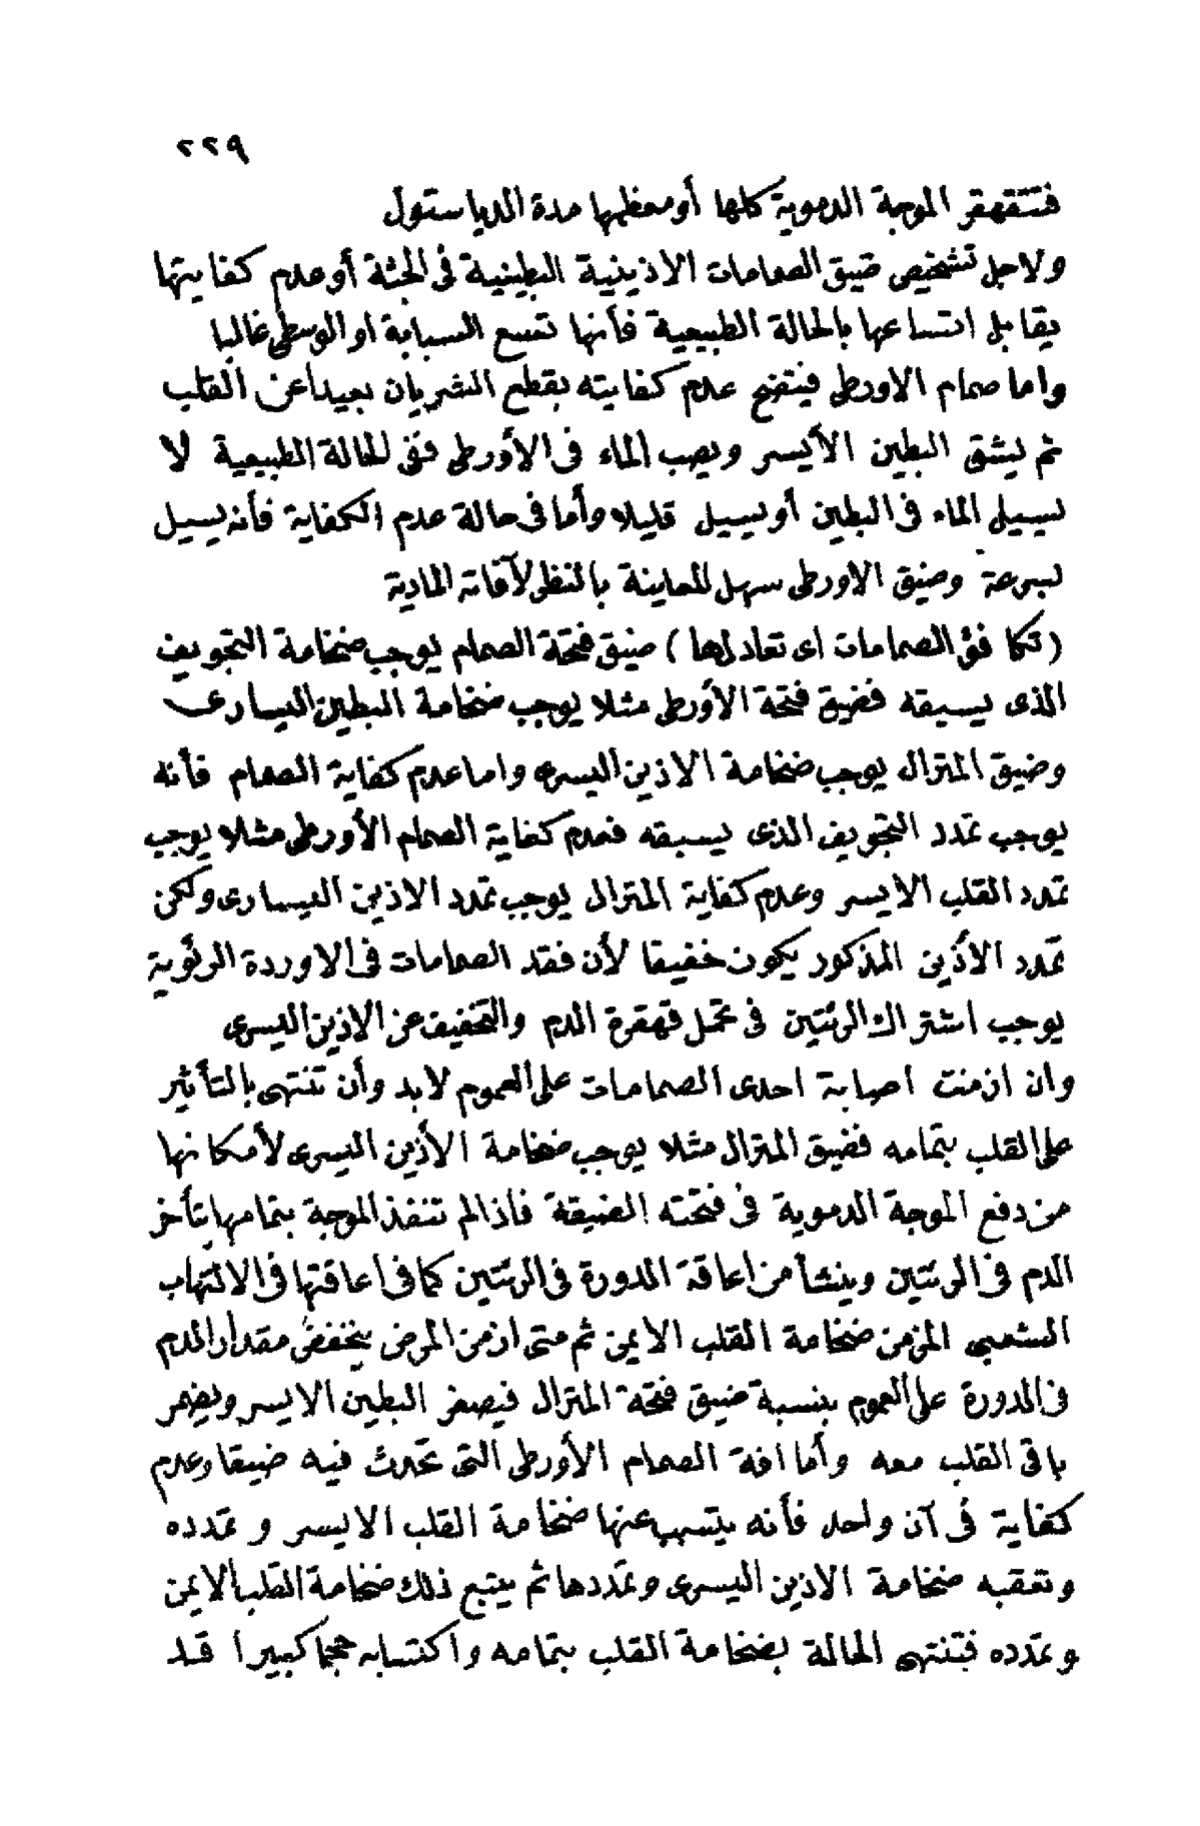 ٢٢٩
فتتقهقر الموجة الدموية كلها أو معظمها مدة الدياستول
ولاجل تشخيص ضيق الصمامات الاذينية البطينية فى الجثة أو عدم كفايتها
يقابل اتساعها بالحالة الطبيعية فأنها تسع السبابة او الوسطى غالبا
واما صمام الاورطى فيتضح عدم كفايته بقطع الشريان بعيدا عن القلب
ثم يشق البطين الأيسر ويصب الماء فى الأورطى ففى الحالة الطبيعية لا
يسيل الماء فى البطين أو يسيل قليلا وأما فى حالة عدم الكفاية فأنه يسيل
بسرعة وضيق الاورطى سهل المعاينة بالنظر لآفاته المادية
(تكافؤ الصمامات اى تعادلها) ضيق فتحة الصمام يوجب ضخامة التجويف
الذى يسبقه فضيق فتحة الأورطى مثلا يوجب ضخامة البطين اليسارى
وضيق المترال يوجب ضخامة الاذين اليسرى واما عدم كفاية الصمام فأنه
يوجب تمدد التجويف الذى يسبقه فعدم كفاية الصمام الأورطى مثلا يوجب
تمدد القلب الايسر وعدم كفاية المترال يوجب تمدد الاذين اليسارى ولكن
تمدد الأذين المذكور يكون خفيفا لأن فقد الصمامات فى الاوردة الرئوية
يوجب اشتراك الرئتين فى تحمل قهقرة الدم والتخفيف عن الاذين اليسرى
وان ازمنت اصابة احدى الصمامات على العموم لابد وأن تنتهى بالتأثير
على القلب بتمامه فضيق المترال مثلا يوجب ضخامة الأذين اليسرى لأمكانها
من دفع الموجة الدموية فى فتحته الضيقة فاذا لم تنفذ الموجة بتمامها يتأخر
الدم فى الرئتين وينشأ من اعاقة الدورة فى الرئتين كما فى اعاقتها فى الالتهاب
الشعبى المزمن ضخامة القلب الايمن ثم متى ازمن المرض ينخفض مقدار الدم
فى الدورة على العموم بنسبة ضيق فتحة المترال فيصغر البطين الايسر ويضمر
باقى القلب معه وأما افة الصمام الأورطى التى تحدث فيه ضيقا وعدم
كفاية فى آن واحد فأنه يتسبب عنها ضخامة القلب الايسر و تمدده
وتعقبه ضخامة الاذين اليسرى وتمددها ثم يتبع ذلك ضخامة القلب الايمن
وتمدده فتنتهى الحالة بضخامة القلب بتمامه واكتسابه حجما كبيرا قد